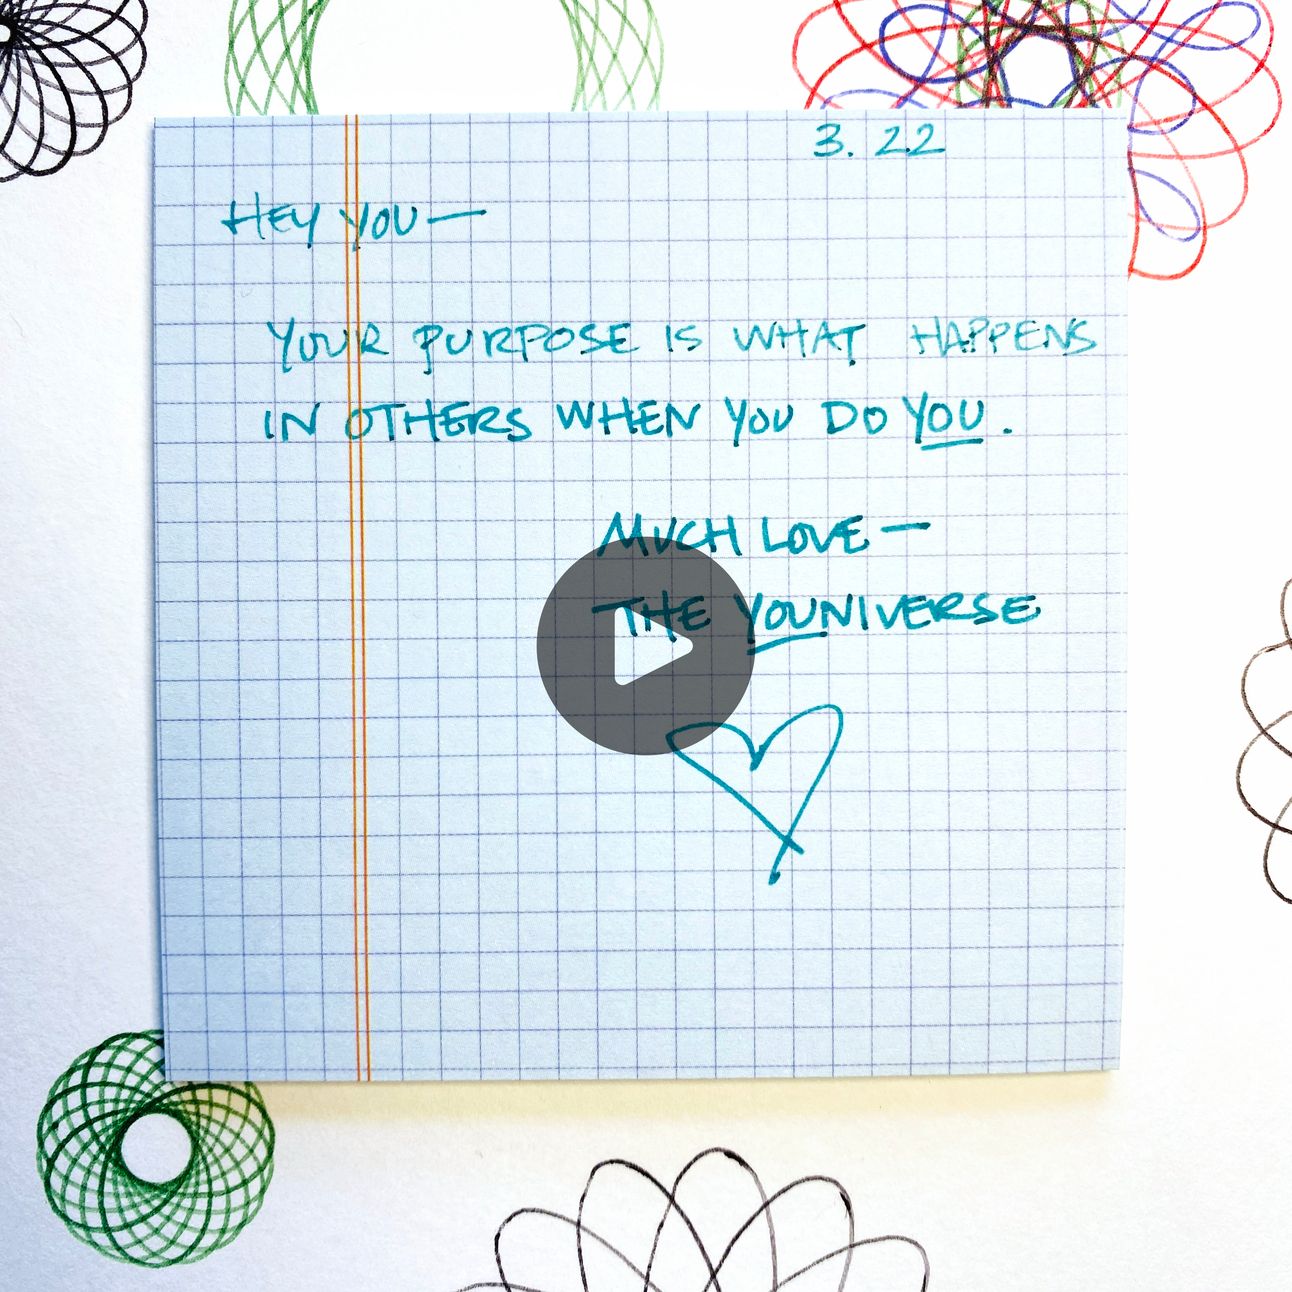 3.22
HEY YOU—
YOUR PURPOSE IS WHAT HAPPENS
IN OTHERS WHEN YOU DO YOU.
MUCH LOVE—
THE YOUNIVERSE